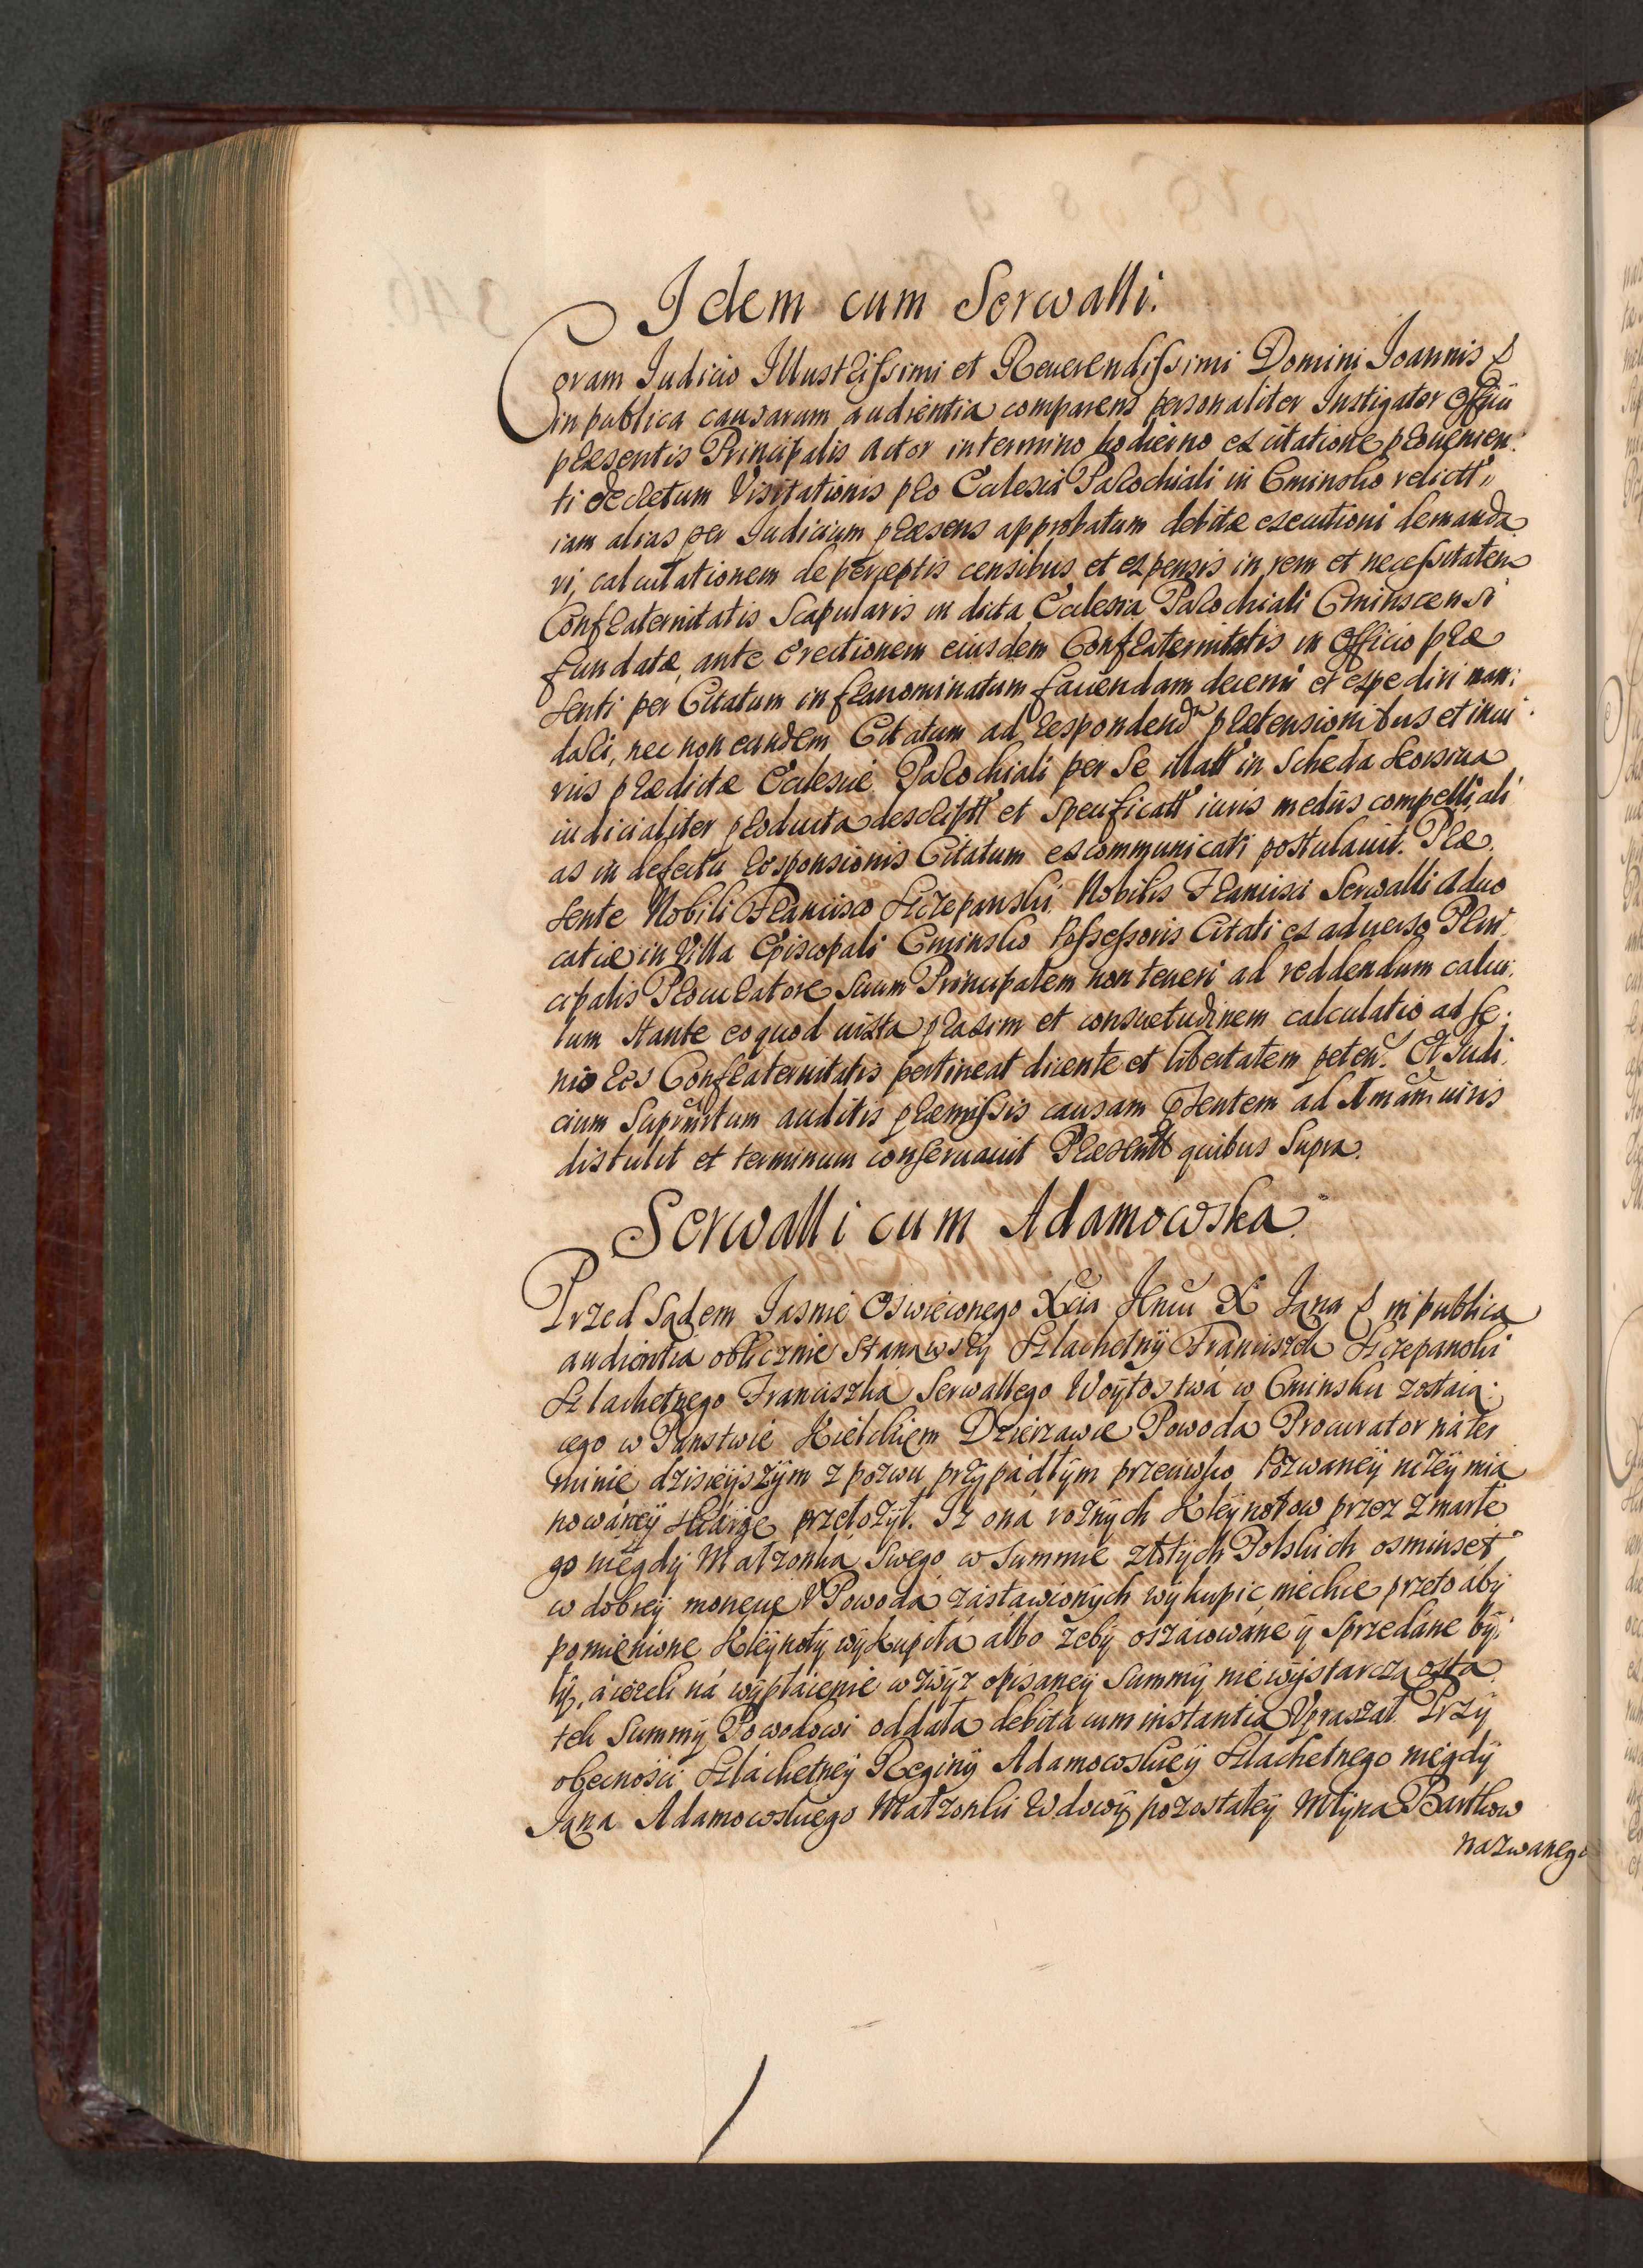 Idem cum Serwalli.
Coram Iudicio Illustrissimi et Reuerendissimi Domini Ioannis &
in publica causarum audientia comparens personaliter Instigator Officii
præsentis Principalis Actor in termino hodierno ex citatione prouenien:
ti decretum Visitationis pro Ecclesia Parochiali in Cminsko relictt
iam alias per Iudicium præsens approbatum debitæ executioni demanda
ri, calculationem de perceptis censibus et expensis in rem et necessitatem
Confraternitatis Scapularis in dicta Ecclesia Parochiali Cminscensi
fundatæ, ante erectionem eiusdem Confraternitatis in Officio præ
senti per Citatum infranominatum faciendam decerni et expediri man:
dari, nec non eundem Citatum ad respondend pretensionibus et iniu
riis prædictæ Ecclesiæ Parochiali per Se illatt in Scheda seorsiua
iudicialiter producta descriptt et specificatt iuris mediis compelli ali
as in defectu responsionis Citatum excommunicari postulauit. Præ
sente Nobili Francisco Szczepanski Nobilis Francisci Serwalli Aduo
catiæ in Villa Episcopali Cminsko Possessoris Citati ex aduerso Prin
cipalis Procuratore Suum Principalem non teneri ad reddendum calcu:
lum stante eo quod iuxta praxim et consuetudinem calculatio ad Se:
niores Confraternitatis pertineat dicente et libertatem peten. Et Iudi
cium Suprascriptum auditis præmissis causam psentem ad Amam iuris
distulit et terminum conseruauit Præsentt quibus Supra.
Serwalli cum Adamowska.
Przed Sądem Iasnie Oswieconego Xcia Jmci X Jana & in publica
audientia oblicznie Stanąwszy Szlachetny Franciszek Szczepanski
Szlachetnego Franciszka Serwallego Woytostwa w Cminsku zostaią:
cego w Panstwie Kieleckiem Dzierzawce Powoda Procurator na ter
minie dzisieyszym z pozwu przypadłym przeciwko Pozwaney niżey mia
nowaney skargę przełożył. Iż ona rożnych Kleynotow przez zmarłe
go niegdy Małzonka Swego w Summie złotych Polskich osmiuset
w dobrey monecie V Powoda zastawionych wykupic niechce przeto aby
pomienione Kleynoty wykupiła albo żeby oszacowane y Sprzedane by:
ły, a ieżeli na wypłacenie w zwyż opisaney Summy nie wystarczą osta
tek Summy Powodowi oddała debita cum instantia Vpraszał. Przy
obecności Szlachetney Reginy Adamowskiey Szlachetnego niegdy
Jana Adamowskiego Małżonki Wdowy pozostałey Młyna Bartkow
nazwanego